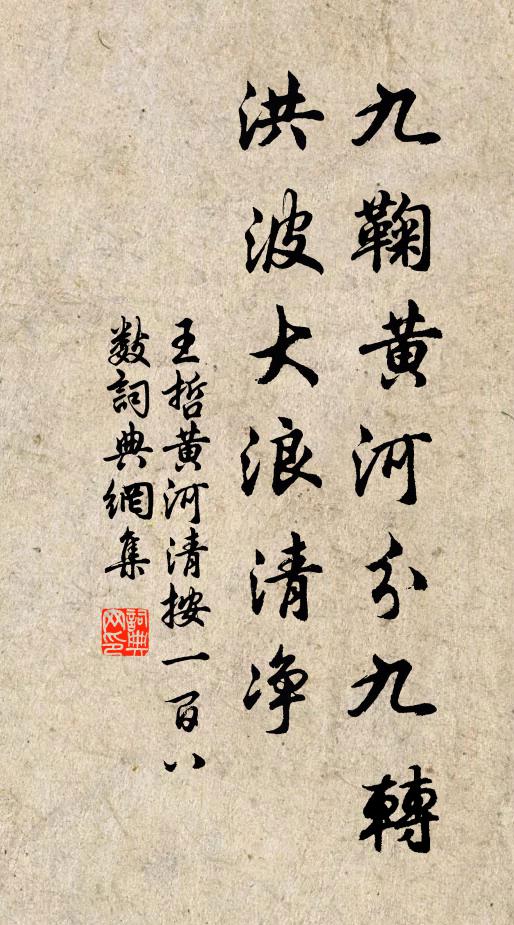 九鞠黄河分九轉
洪波大浪清净
王哲黄河清按一百八
數詞典網集
詞典网印